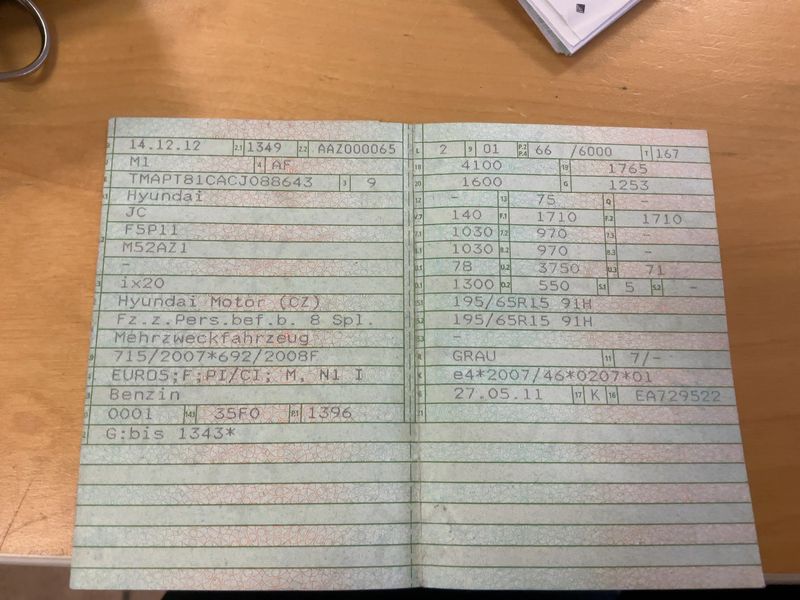 14.12.12 2.1 1349 2.2 AAZ000065
M1 4 AF
TMAPT81CACJ088643 3 9
Hyundai
JC
F5P11
M52AZ1
-
ix20
Hyundai Motor (CZ)
Fz.z.Pers.bef.b. 8 Spl.
Mehrzweckfahrzeug
715/2007*692/2008F
EURO5;F;PI/CI; M, N1 I
Benzin
0001 14.1 35F0 P.1 1396
G:bis 1343*
L 2 9 01 P.2 P.4 66 /6000 T 167
18 4100 19 1765
20 1600 G 1253
12 - 13 75 Q -
V.7 140 F.1 1710 F.2 1710
7.1 1030 7.2 970 7.3 -
8.1 1030 8.2 970 8.3 -
U.1 78 U.2 3750 U.3 71
O.1 1300 O.2 550 S.1 5 S.2 -
15.1 195/65R15 91H
15.2 195/65R15 91H
15.3 -
R GRAU 11 7/-
K e4*2007/46*0207*01
6 27.05.11 17 K 16 EA729522
21